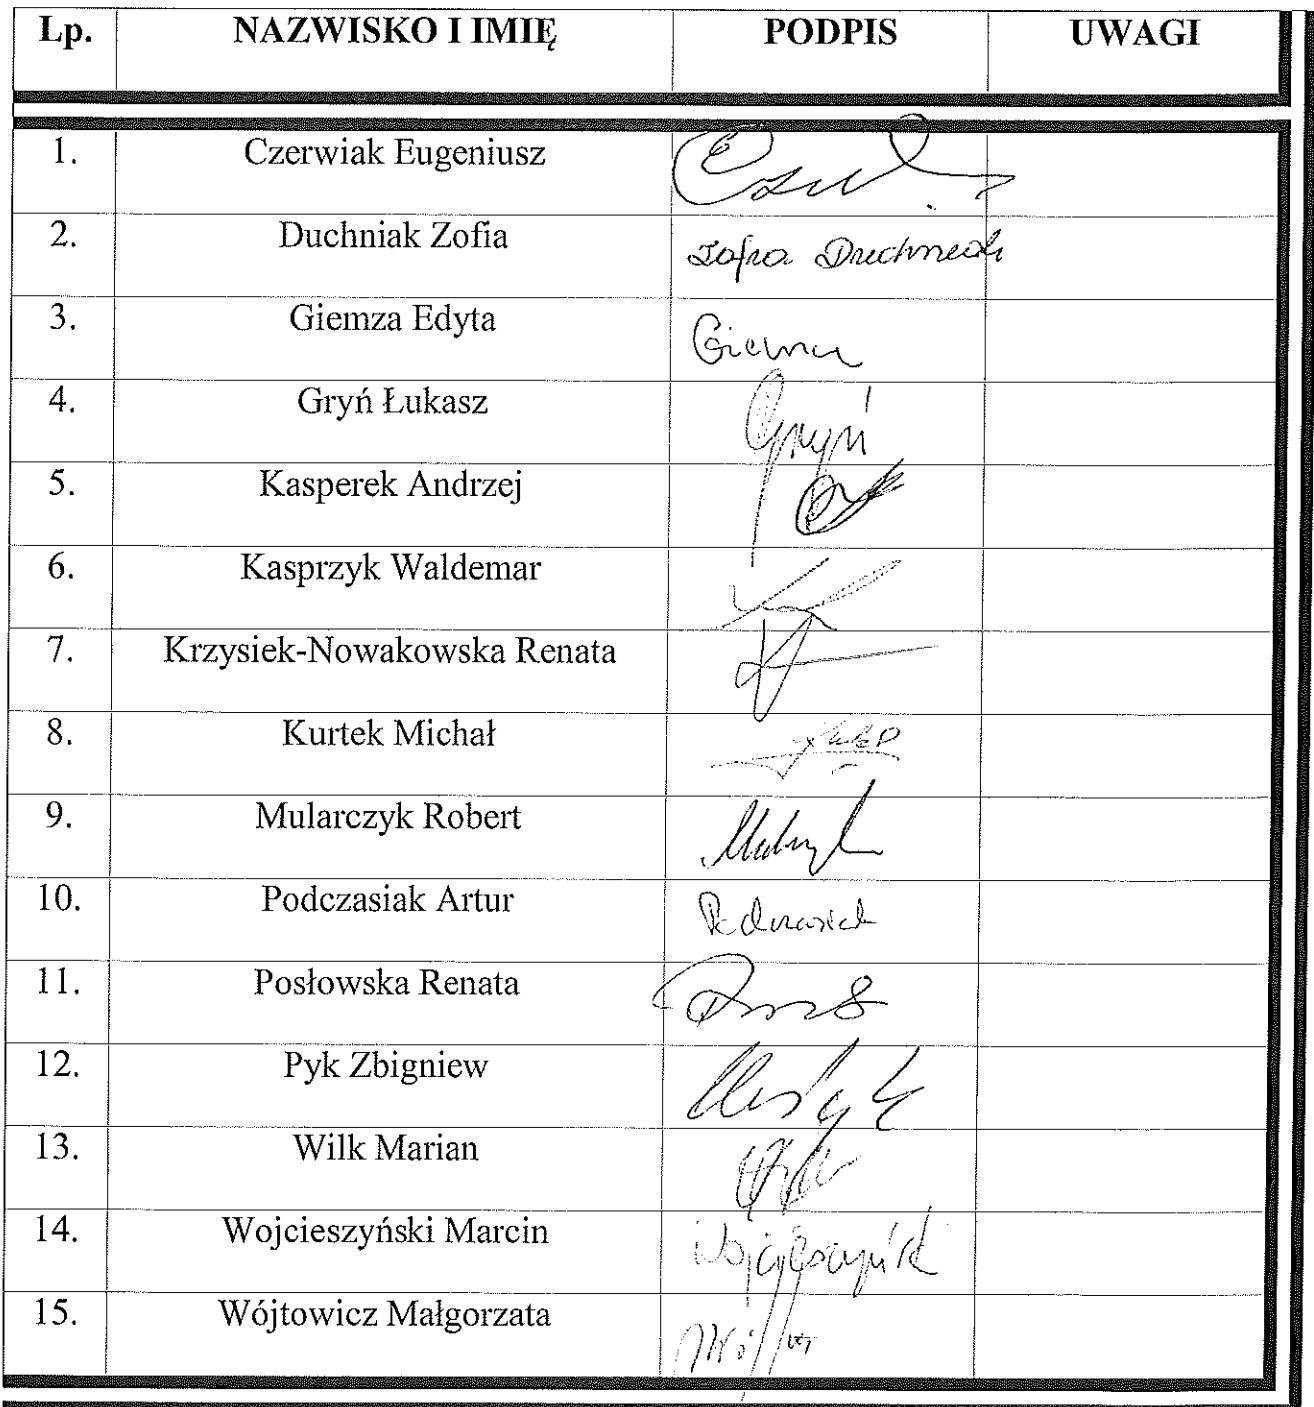 Lp. NAZWISKO I IMIĘ PODPIS UWAGI
1. Czerwiak Eugeniusz
2. Duchniak Zofia Zofia Duchniak
3. Giemza Edyta Giemza
4. Gryń Łukasz Gryń
5. Kasperek Andrzej
6. Kasprzyk Waldemar
7. Krzysiek-Nowakowska Renata
8. Kurtek Michał
9. Mularczyk Robert
10. Podczasiak Artur Podczasiak
11. Posłowska Renata
12. Pyk Zbigniew
13. Wilk Marian
14. Wojcieszyński Marcin
15. Wójtowicz Małgorzata